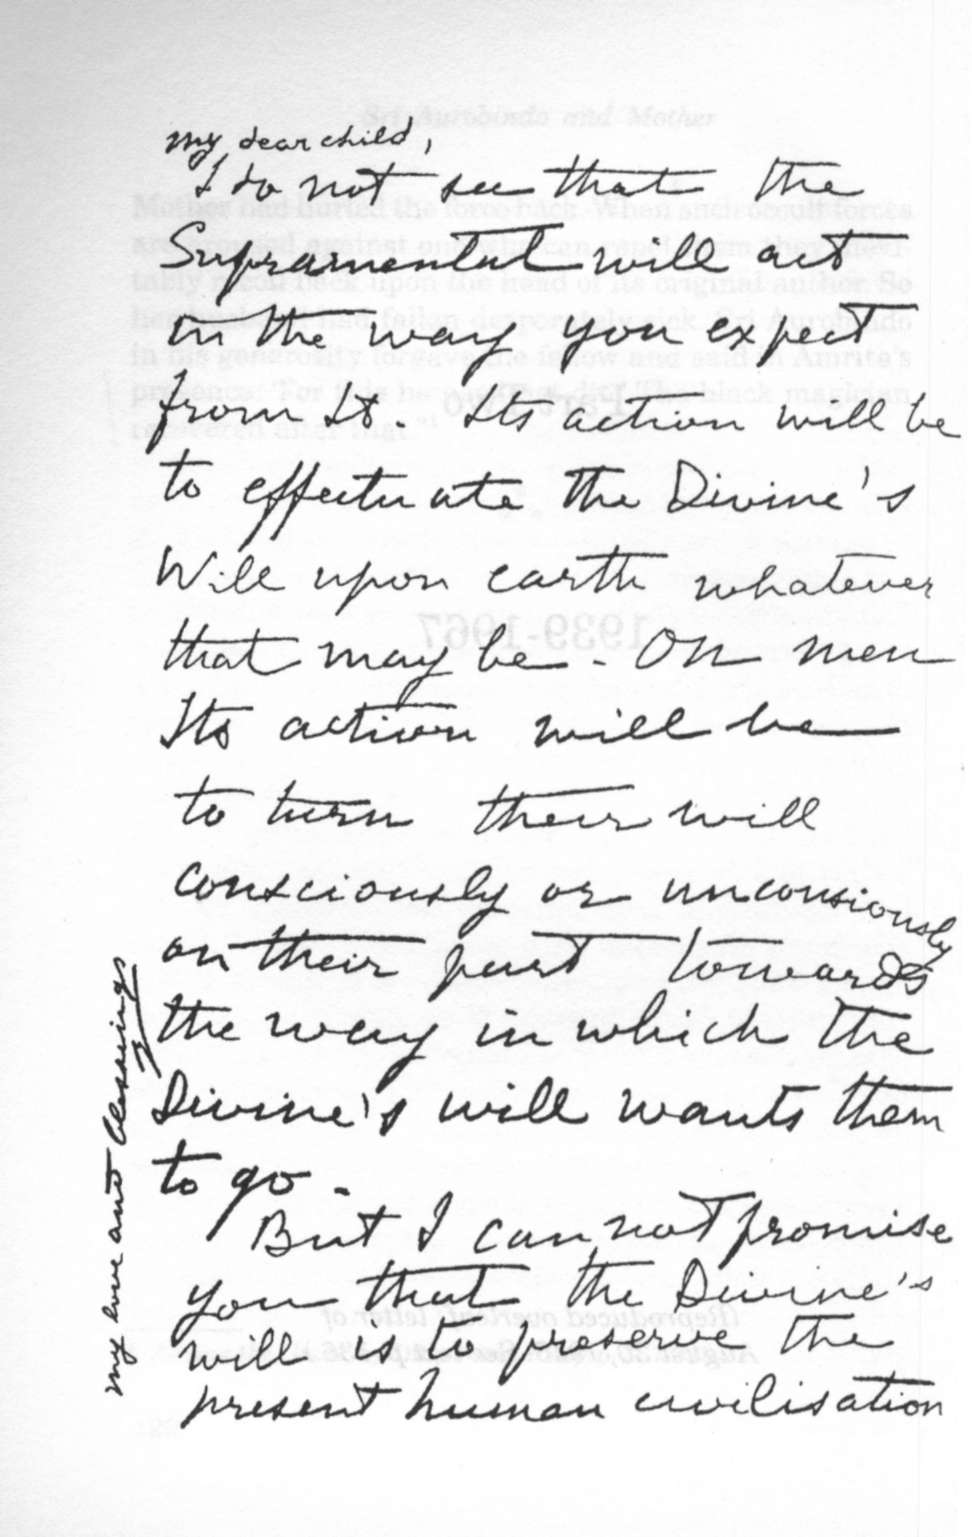 Sri Aurobindo and Mother
My dear child,
I do not see that the
Supramental will act
in the way you expect
from It. Its action will be
to effectuate the Divine's
Will upon earth whatever
that may be. On men
Its action will be
to turn their will
consciously or unconsiously
on their part towards
the way in which the
Divine's will wants them
to go.
But I can not promise
you that the Divine's
will is to preserve the
present human civilisation
My love and blessings
1939-1967